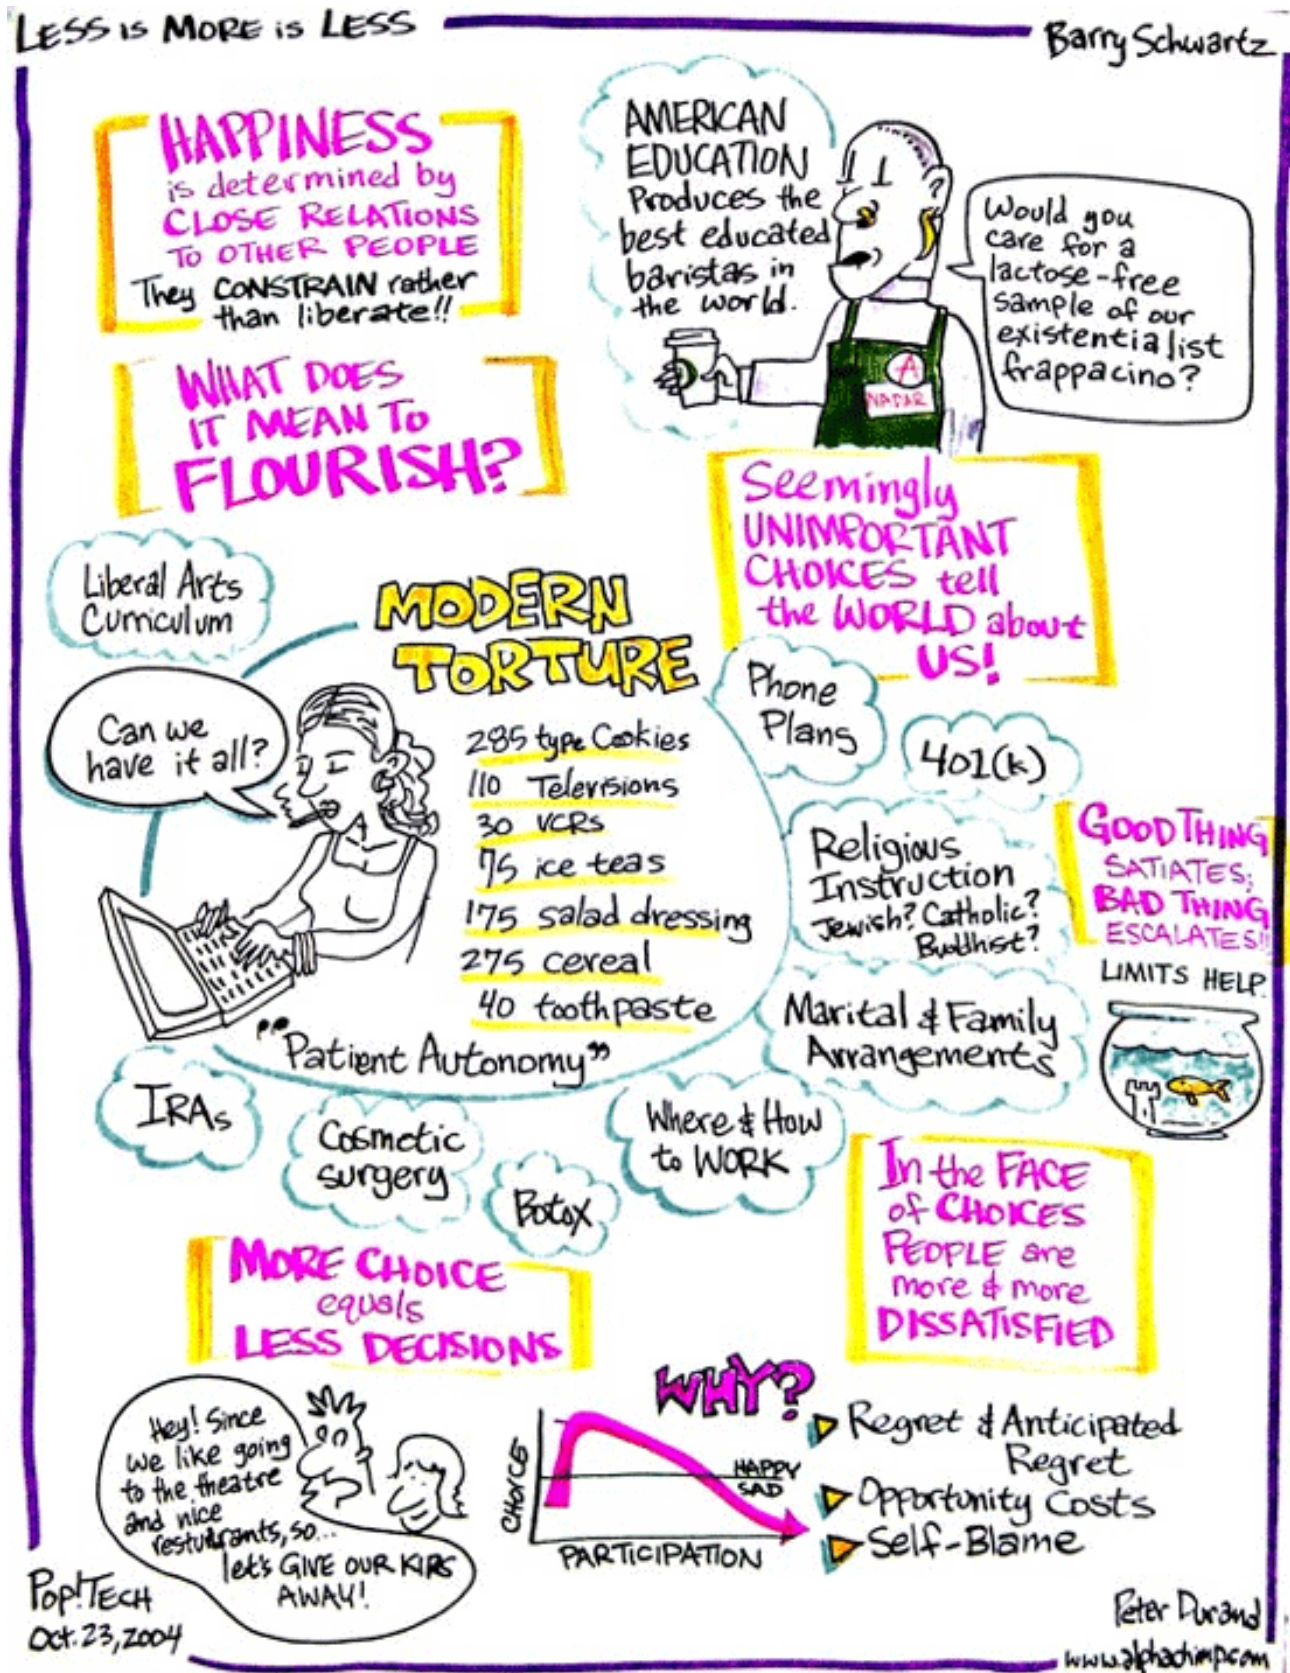 LESS IS MORE IS LESS
Barry Schwartz
HAPPINESS
is determined by
CLOSE RELATIONS
TO OTHER PEOPLE
They CONSTRAIN rather
than liberate!!
AMERICAN
EDUCATION
Produces the
best educated
baristas in
the world.
Would you
care for a
lactose-free
sample of our
existentialist
frappacino?
A
WHAT DOES
IT MEAN TO
FLOURISH?
Seemingly
UNIMPORTANT
CHOICES tell
the WORLD about
US!
Liberal Arts
Curriculum
Can we
have it all?
MODERN
TORTURE
285 type Cookies
110 Televisions
30 VCRs
75 ice teas
175 salad dressing
275 cereal
40 toothpaste
"Patient Autonomy"
Phone
Plans
401(k)
Religious
Instruction
Jewish? Catholic?
Buddhist?
Marital & Family
Arrangements
GOOD THING
SATIATES;
BAD THING
ESCALATES!!
LIMITS HELP.
IRAs
Cosmetic
surgery
Botox
Where & How
to WORK
In the FACE
of CHOICES
PEOPLE are
more & more
DISSATISFIED
MORE CHOICE
equals
LESS DECISIONS
Hey! Since
we like going
to the theatre
and nice
restuarants, so...
let's GIVE OUR KIDS
AWAY!
WHY?
CHOICE
HAPPY
SAD
PARTICIPATION
Regret & Anticipated
Regret
Opportunity Costs
Self-Blame
Pop!TECH
Oct. 23, 2004
Peter Durand
www.alphachimp.com